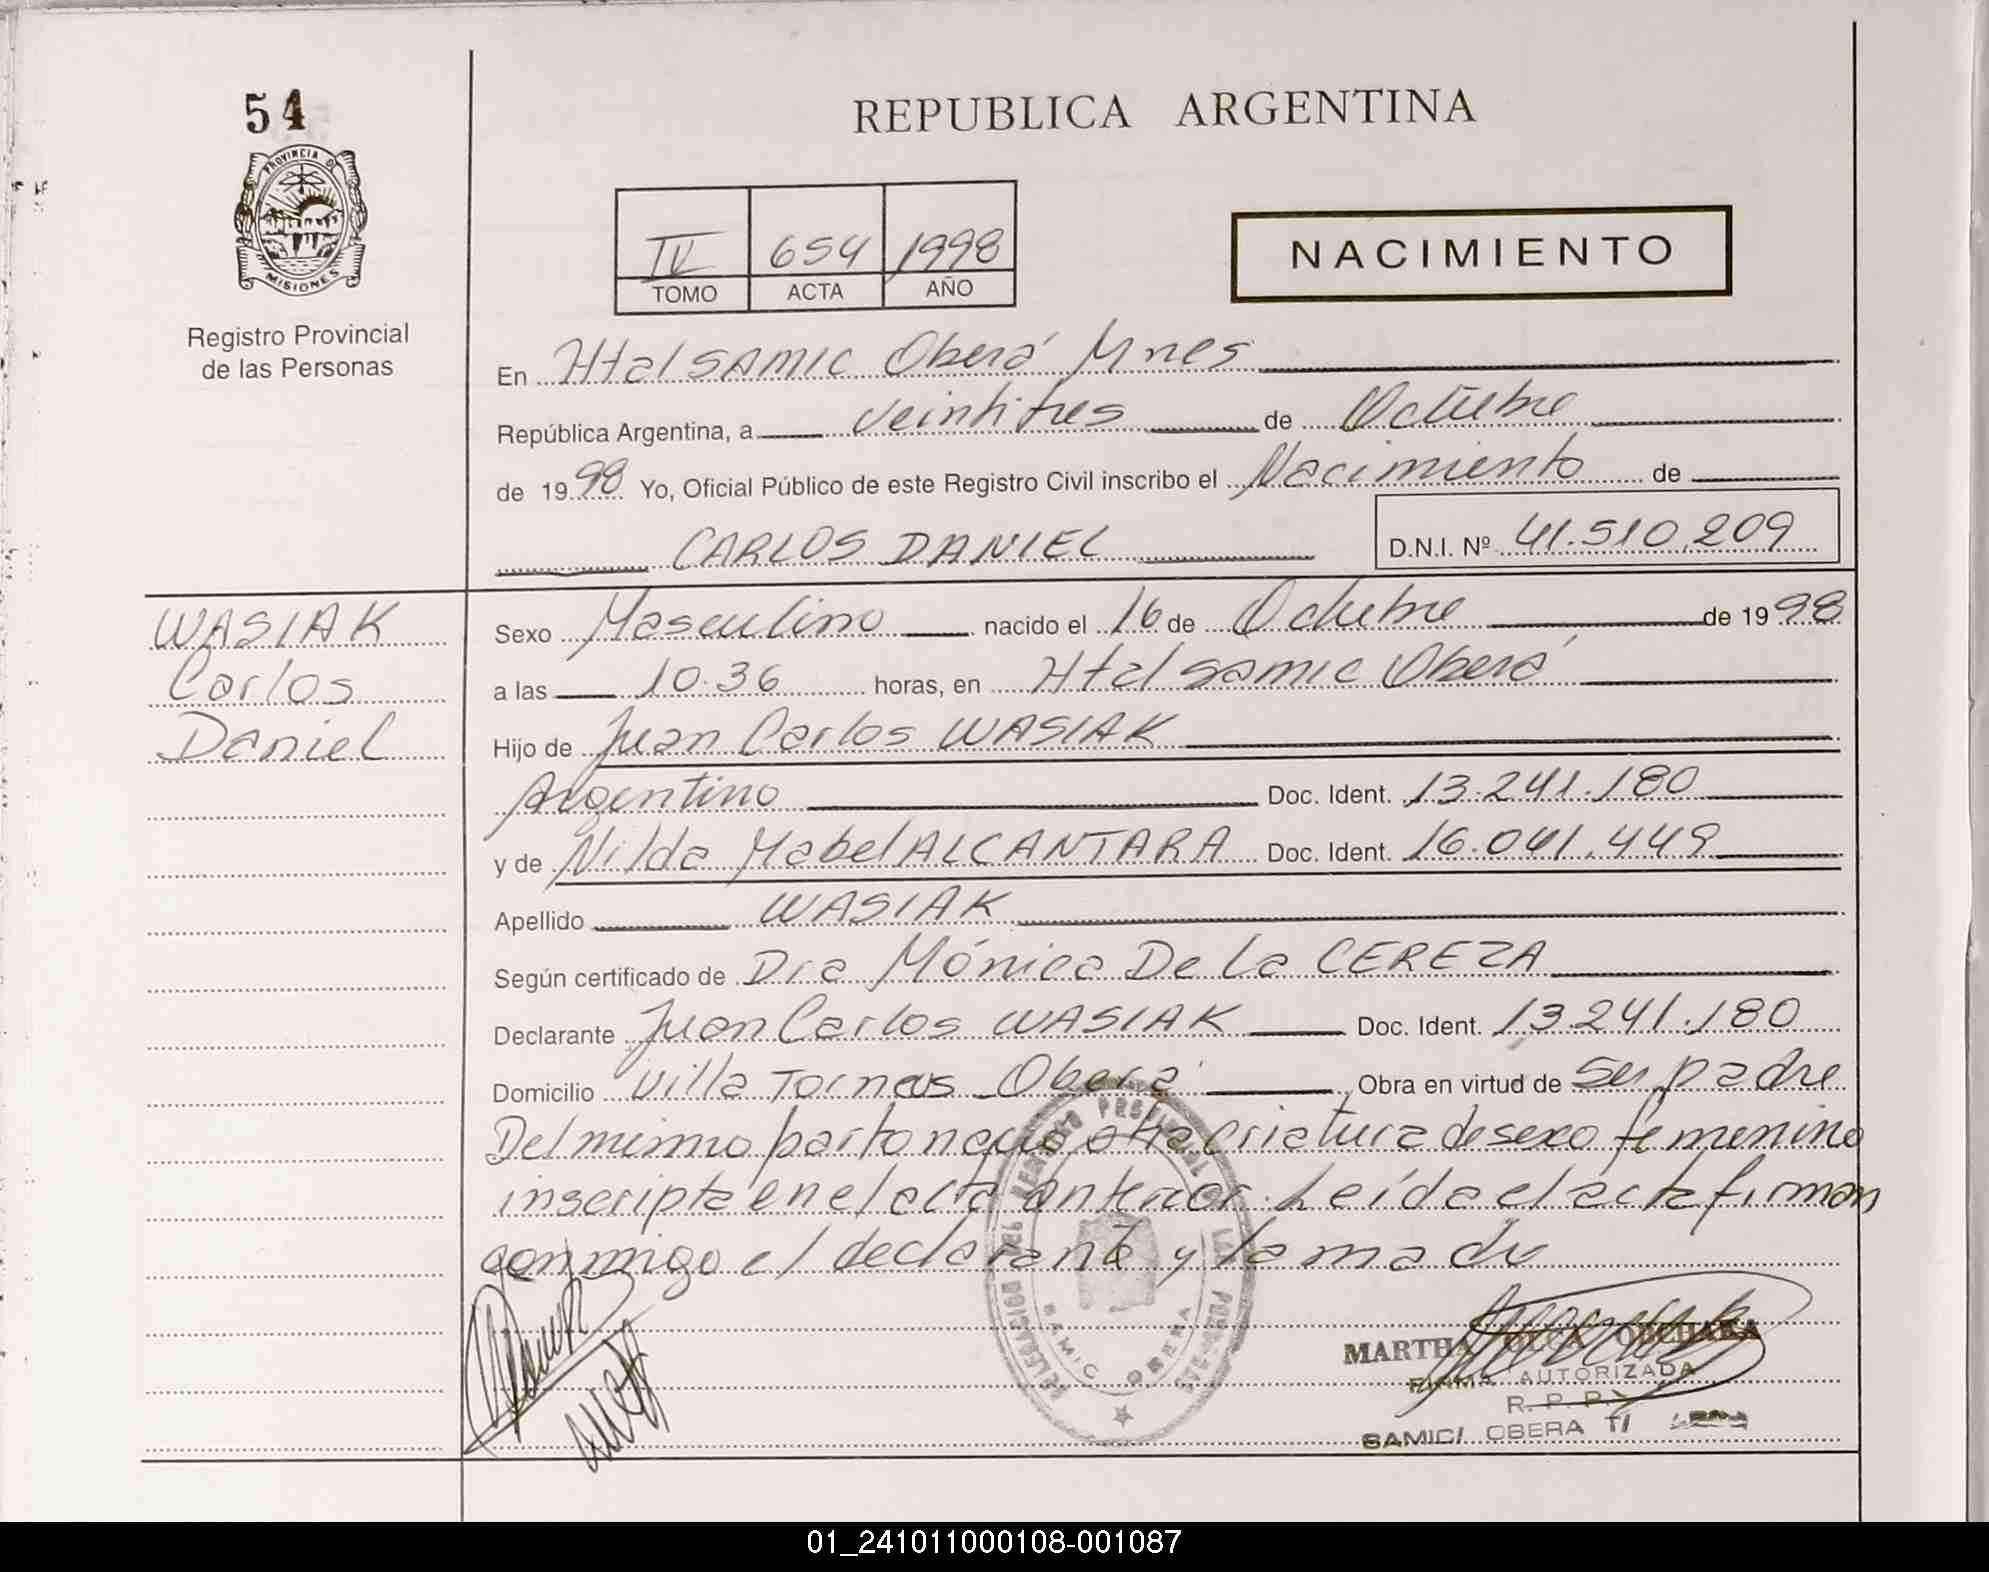 54
REPUBLICA ARGENTINA
PROVINCIA DE
MISIONES
Registro Provincial
de las Personas
IV 654 1998
TOMO ACTA AÑO
NACIMIENTO
En Htal SAMIC Oberá Mnes
República Argentina, a veintitres de Octubre
de 1998 Yo, Oficial Público de este Registro Civil inscribo el Nacimiento de
CARLOS DANIEL D.N.I. Nº 41.510.209
WASIAK
Carlos
Daniel
Sexo Masculino nacido el 16 de Octubre de 1998
a las 10.36 horas, en Htal Samic Oberá
Hijo de Juan Carlos WASIAK
Argentino Doc. Ident. 13.241.180
y de Nilda Mabel ALCANTARA Doc. Ident. 16.041.449
Apellido WASIAK
Según certificado de Dra Mónica De La CEREZA
Declarante Juan Carlos WASIAK Doc. Ident. 13.241.180
Domicilio Villa Torneus Oberá Obra en virtud de Ser padre
Del mismo parto nació otra criatura de sexo femenino
inscripta en el acta anterior. Leída el acta firman
conmigo el declarante y la madre
DELEGACION DEL REGISTRO PROVINCIAL DE LAS PERSONAS
SAMIC OBERA
MARTHA OLGA
FIRMA AUTORIZADA
R. P. P.
SAMIC/ OBERA
01_241011000108-001087